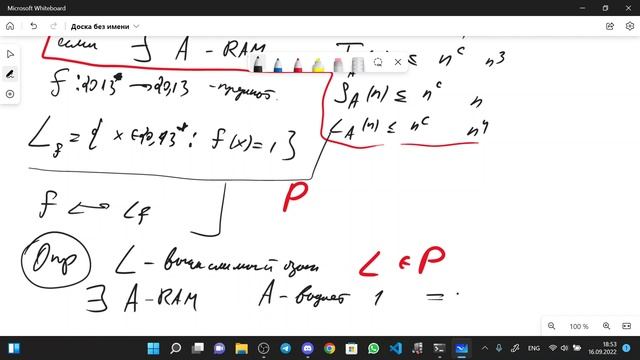 Microsoft Whiteboard
Доска без имени
если ∃ A - RAM
≤ n^c n^3
f: {0,1}* → {0,1} - предикат.
S_A(n) ≤ n^c n
L_f = { x ∈ {0,1}* : f(x) = 1 }
L_A(n) ≤ n^c n^4
P
f ↔ L_f
Опр L - вычислимый язык L ∈ P
∃ A - RAM A - выдает 1 =
100 %
ENG
18:53
16.09.2022